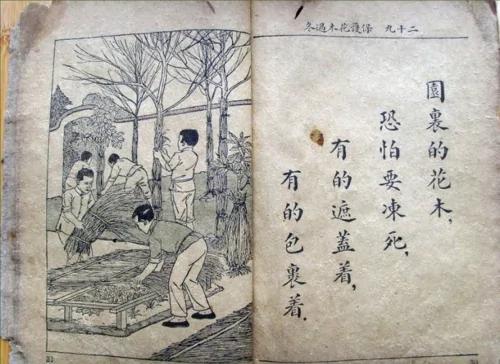 二十九 保護花木過冬
園裏的花木，
恐怕要凍死，
有的遮蓋着，
有的包裹着．